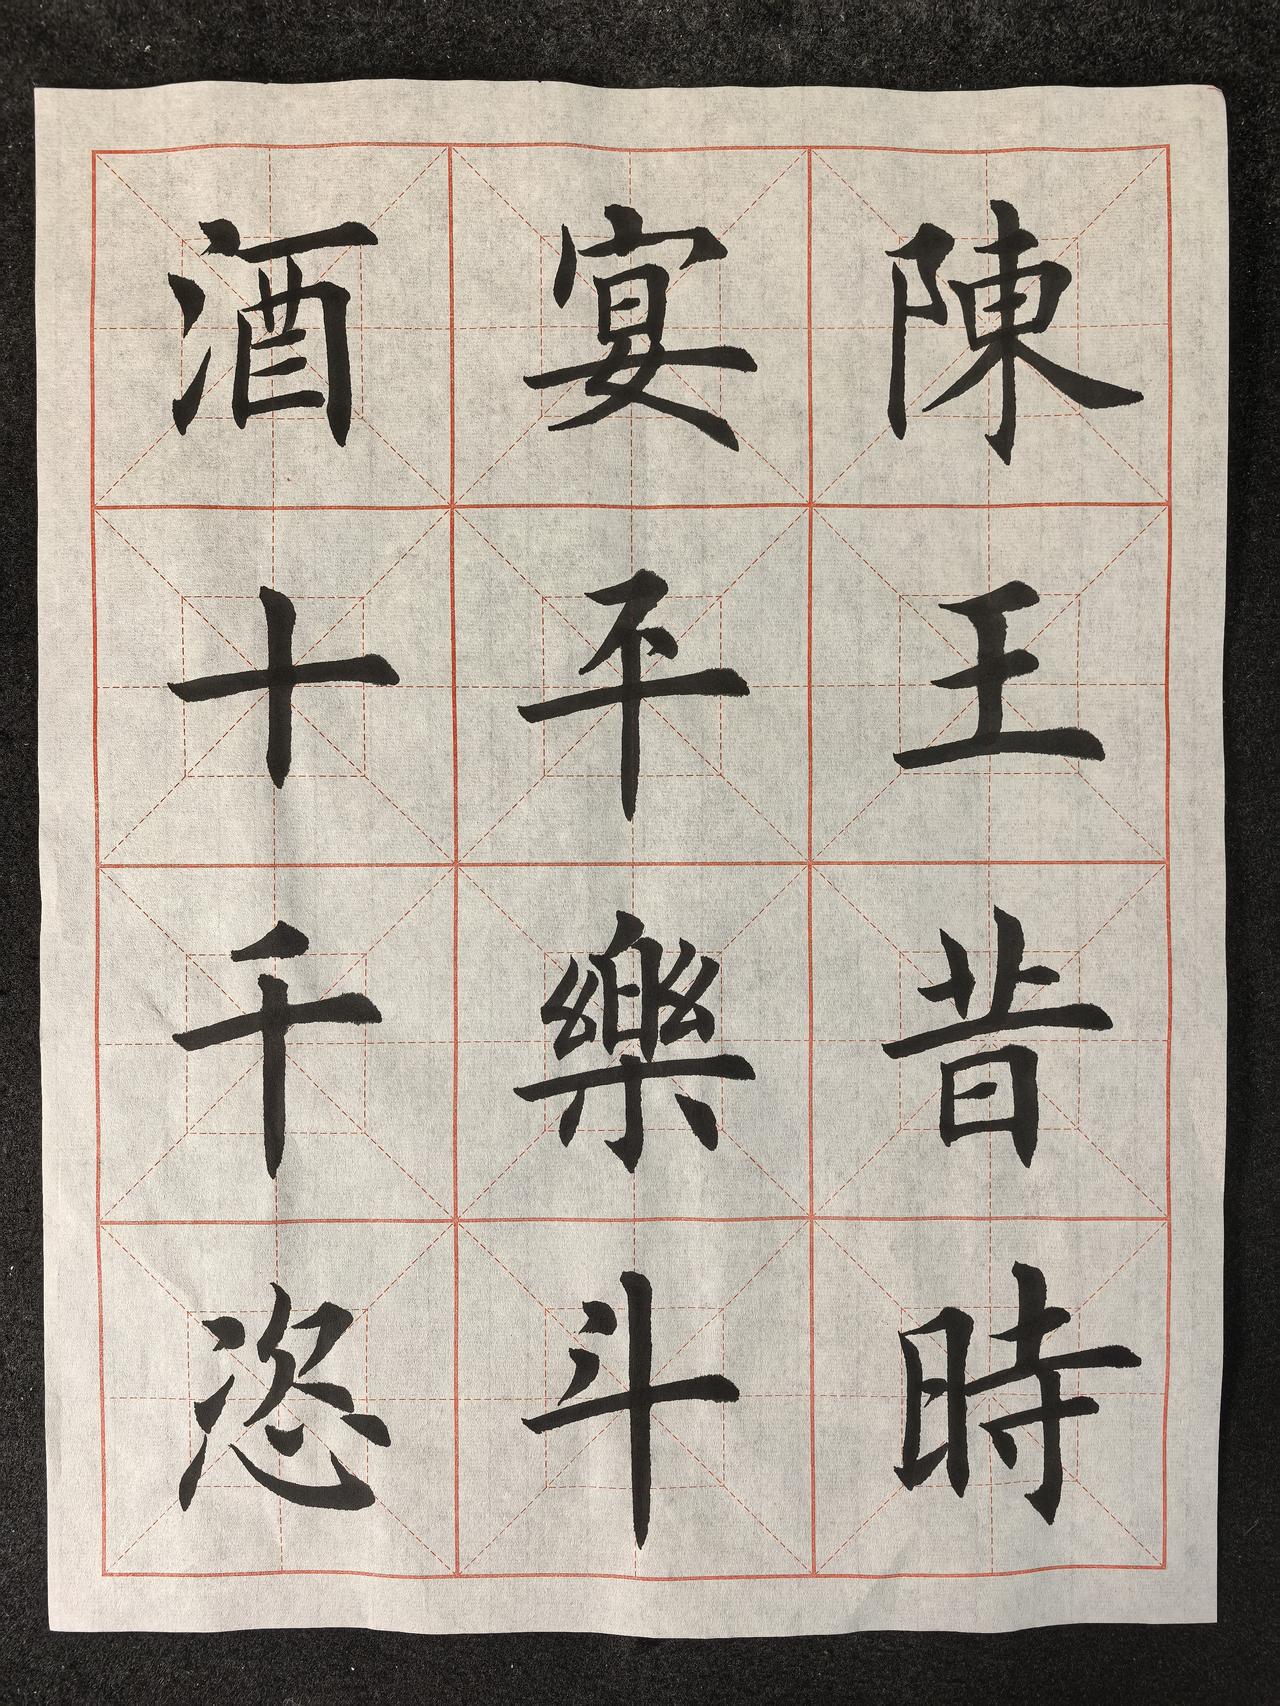 陳王昔時
宴平樂斗
酒十千恣